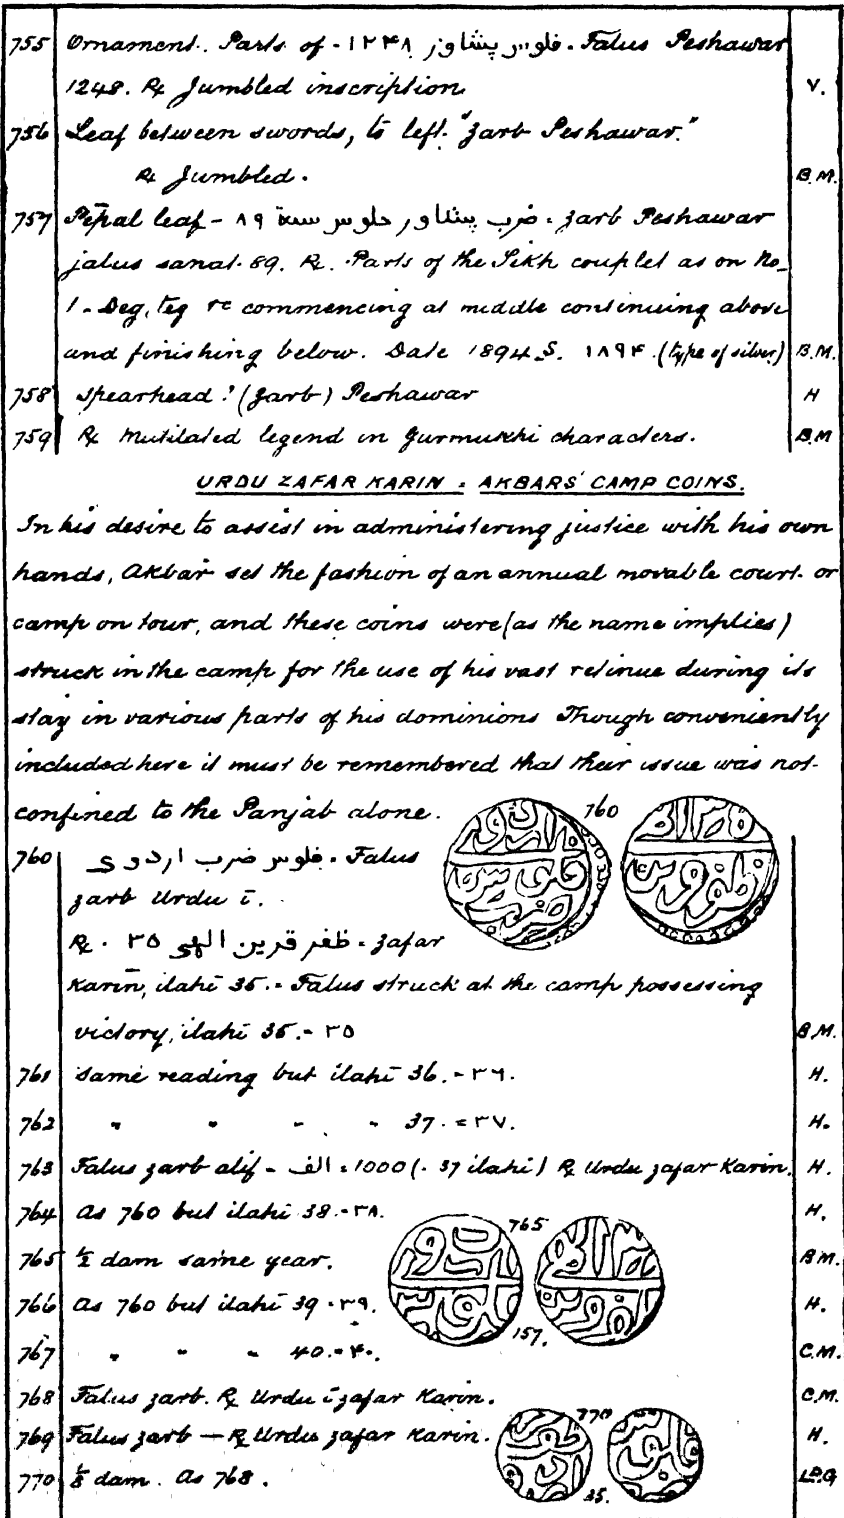 755 Ornament. Parts of - ۱۲۴۸ فلوس پشاور. Falus Peshawar
1248. Rx Jumbled inscription V.
756 Leaf between swords, to left. "Zarb Peshawar."
Rx Jumbled. B.M.
757 Pīpal leaf - ضرب پشاور جلوس سنة ۸۹. Zarb Peshawar
jalus sanat. 89. Rx. Parts of the Sikh couplet as on No.
1 - Deg, teg &c commencing at middle continuing above
and finishing below. Date 1894 S. ۱۸۹۴. (type of silver) B.M.
758 Spearhead? (Zarb) Peshawar H
759 Rx Mutilated legend in Gurmukhi characters. B.M
URDU ZAFAR KARIN = AKBARS' CAMP COINS.
In his desire to assist in administering justice with his own
hands, Akbar set the fashion of an annual movable court or
camp on tour, and these coins were (as the name implies)
struck in the camp for the use of his vast retinue during its
stay in various parts of his dominions Though conveniently
included here it must be remembered that their issue was not
confined to the Panjab alone. 760
760 فلوس ضرب اردوی. Falus
zarb Urdu ī.
Rx. ظفر قرین الهی ۳۵ = zafar
Karīn, ilahī 35. = Falus struck at the camp possessing
victory, ilahī 35. = ۳۵ B.M.
761 Same reading but ilahī 36. = ۳۶. H.
762 " " " " 37. = ۳۷. H.
763 Falus zarb alif - الف = 1000 (= 37 ilahī) Rx Urdu zafar Karin. H.
764 As 760 but ilahī 38. = ۳۸. H.
765
765 ½ dam same year. B.M.
766 As 760 but ilahī 39 = ۳۹. H.
157.
767 " " " 40. = ۴۰. C.M.
768 Falus zarb. Rx Urdu ī zafar Karin. C.M.
770
769 Falus zarb — Rx Urdu zafar Karin. H.
770 ⅛ dam. As 768. L.P.G
35.